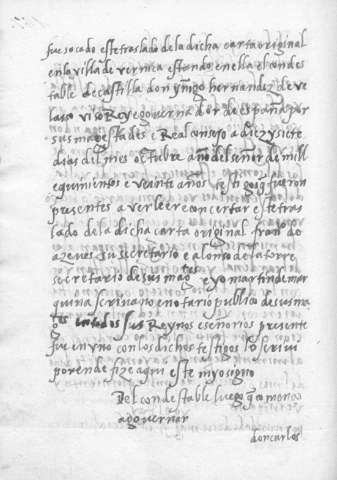 fue socado este traslado dela dicha carta original
enla villa de vermea estando enella el condes
table de castilla don yñigo hernandez de ve
lasco viso Rey e governador de españa por
sus magestades e Real consejo a diez y siete
dias del mes otubre año del señor de mill
e quinientos e veinte años testigos q fueron
presentes a ver leer e concertar este tras
lado dela dicha carta original fran do
azeves su secretario e alonso dela torre
secretario de sus mag tes e yo martin de mar
quina escrivano e notario publico de sus ma
g tes en todos sus Reynos e señorios presente
fue en vno conlos dichos testigos
por ende fize aqui este myo signo
Del condestable luego q comenco
a governar
don carlos